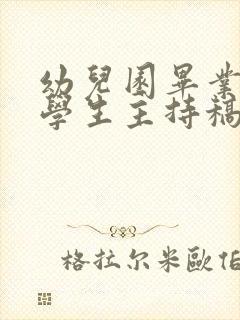 幼兒園畢業
學生主持稿
格拉尔米歐伯